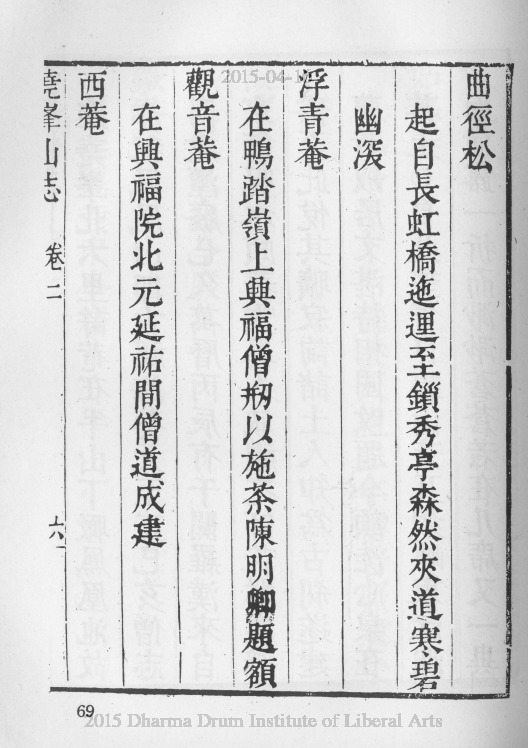 2015-04-1
曲徑松
起自長虹橋迤邐至鎖秀亭森然夾道寒碧
幽深
浮青菴
在鴨踏嶺上興福僧剏以施茶陳明卿題額
觀音菴
在興福院北元延祐間僧道成建
西菴
堯峯山志 卷二 六一
69
2015 Dharma Drum Institute of Liberal Arts